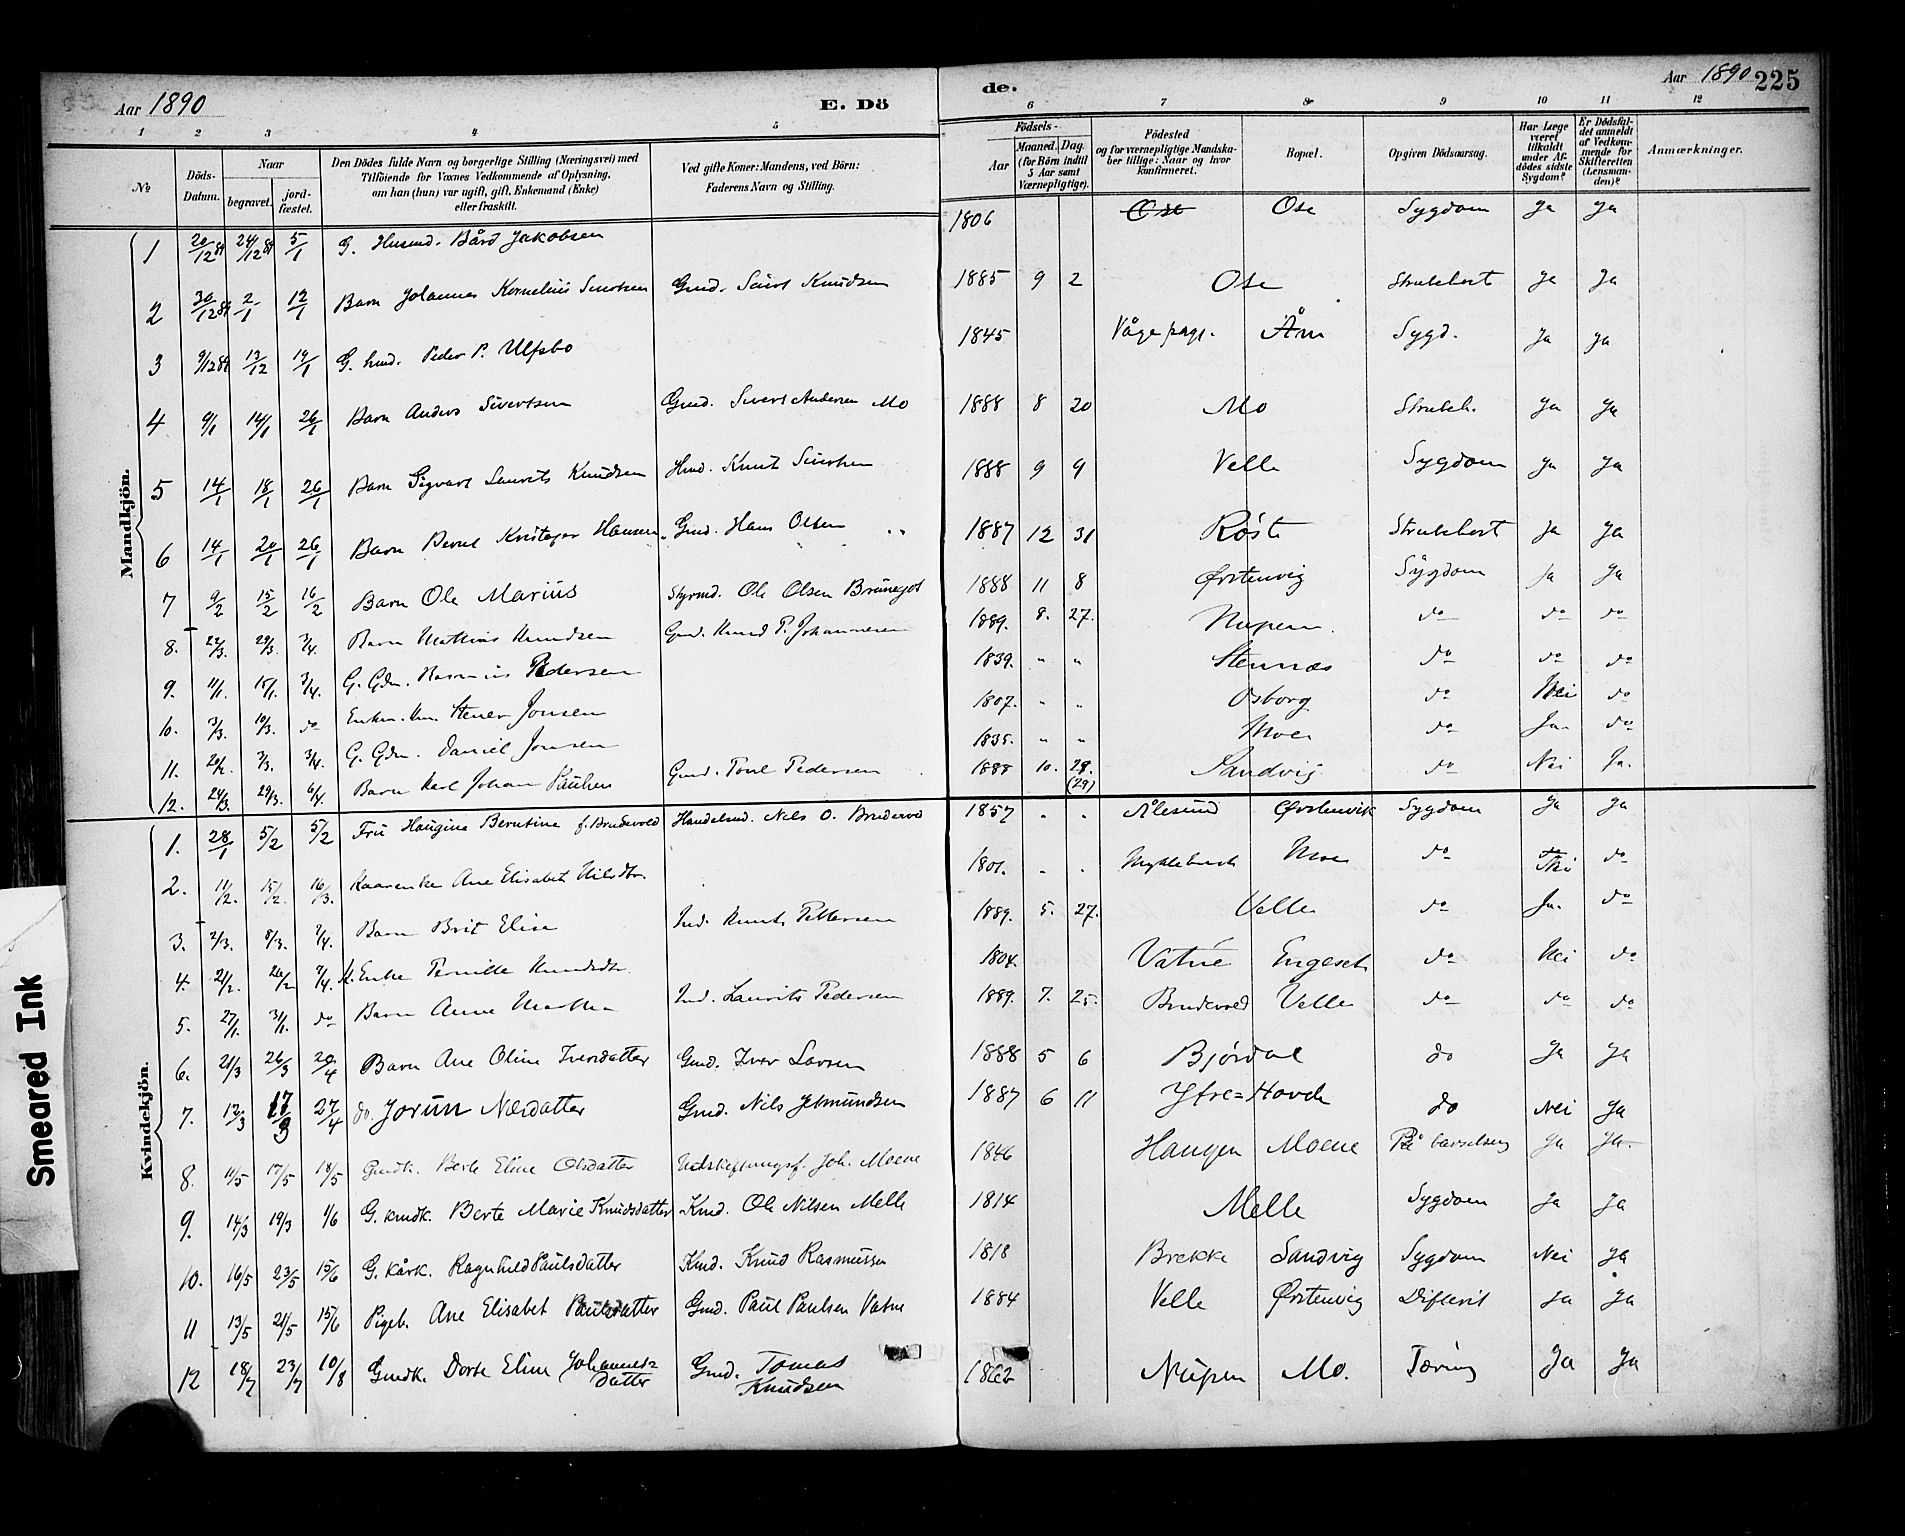 Aar 1890
E. Dö
de.
Aar 1890 225
1 2 3 4 5 6 7 8 9 10 11 12
№
Döds-Datum.
Naar
begravet.
jord-fæstet.
Den Dödes fulde Navn og borgerlige Stilling (Næringsvei) med
Tilföiende for Voxnes Vedkommende af Oplysning,
om han (hun) var ugift, gift, Enkemand (Enke)
eller fraskilt.
Ved gifte Koner: Mandens, ved Börn:
Faderens Navn og Stilling.
Födsels-
Aar
Maaned. Dag.
(for Börn indtil
5 Aar samt
Værnepligtige).
Födested
og for værnepligtige Mandska-
ber tillige: Naar og hvor
konfirmeret.
Bopæl.
Opgiven Dödsaarsag.
Har Læge
været
tilkaldt
under Af-
dödes sidste
Sygdom?
Er Dödsfal-
det anmeldt
af Vedkom-
mende for
Skifteretten
(Lensman-
den)?
Anmærkninger.
Mandkjön.
1 20/12 89 24/12 89 5/1 G. Husmd. Bård Jakobsen 1806 Ose Ose Sygdom Ja Ja
2 30/12 89 2/1 12/1 Barn Johannes Kornelius Sivertsen Gmd. Sivert Knudsen 1885 9 2 Ose Strubehost Ja Ja
3 9/12 89 13/12 19/1 G. hmd. Peder P. Ulfsbo 1845 Våge Åm Sygd. Ja Ja
4 9/1 14/1 26/1 Barn Anders Sivertsen Gmd. Sivert Andersen Mo 1888 8 20 Mo Strubeh. Ja Ja
5 14/1 18/1 26/1 Barn Sigvart Laurits Knudsen Hmd. Knut Sivertsen 1888 9 9 Velle Sygdom Ja Ja
6 14/1 20/1 26/1 Barn Bernt Kristofer Hansen Gmd. Hans Olsen 1887 12 31 Røste Strubehost Ja Ja
7 9/2 15/2 16/2 Barn Ole Marius Styrmd. Ole Olsen Brunegot 1888 11 8 Ørstenvig Sygdom Ja Ja
8. 22/3. 29/3. 7/4. Barn Mathias Knudsen Gmd. Knud P. Johannesen 1889. 8. 27. Nupen. do do do
9. 11/1. 15/1. 3/4. G. Gdm. Rasmus Pedersen 1839. " " Stennæs do do do
10. 3/3. 10/3. do Enkem. Stener Jonsen 1807. " " Osborg do Nei do
11. 20/2. 7/3. 3/4. G. Gdm. Daniel Jonsen 1835. " " Moe do Ja. do
12. 24/3. 29/3. 6/4. Barn Karl Johan Paulsen Gmd. Poul Pedersen 1888 10. 28. (29) Sandvig do Nei Ja.
Kvindekjön.
1. 28/1 5/2 5/2 Fru Haugine Berntine f. Brudevold Handelsmd. Nels O. Brudevold 1857 . . Ålesund Ørstenvik Sygdom Ja Ja
2. 11/2. 15/2. 16/3. Ane Elisabet Nilsdtr. 1801. . . Myklebust Moe do Nei do
3. 2/3. 8/3. 7/4. Barn Brit Elise Ind. Knut Pettersen 1889. 5. 27. Velle do Ja. do
4. 21/2. 26/2 7/4. Enke Pernille Knudsdtr. 1804. Vatne Engeset do Nei do
5. 27/1. 31/1. do Barn Anne Martha Ind. Laurits Pedersen 1889. 7. 25. Brudevold Velle do do do
6. 21/3 26/3 20/4 Barn Ane Oline Iversdatter Gmd. Iver Larsen 1888 5 6 Bjørdal do Ja Ja
7. 12/3 17/3 27/4 do. Jorun Nilsdatter Gmd. Nils Jetmundsen 1887 6 11 Ytre=Hovde do Nei Ja
8. 11/5 17/5 18/5 Gmdk. Berte Eline Olsdatter Udskiftningsf. Joh. Moene 1846 Haugen Moene På barselseng Ja Ja.
9. 14/3 19/3 1/6 G. kmdk. Berte Marie Knudsdatter Kmd. Ole Nilsen Melle 1814 Melle Sygdom Ja Ja
10. 16/5 23/5 15/6 G. kårk. Ragnhild Paulsdatter Kmd. Knud Rasmussen 1818 Brekke Sandvig Sygdom Nei Ja
11 13/5 21/5 15/6 Pigeb. Ane Elisabet Paulsdatter Gmd. Paul Paulsen Vatne 1884 Velle Ørstenvig Difterit Ja Ja
12 18/7 23/7 10/8 Gmdk. Dorte Eline Johannes=datter Gmd. Tomas Knudsen 1862 Nupen Mo. Tæring Ja Ja
Smeared Ink